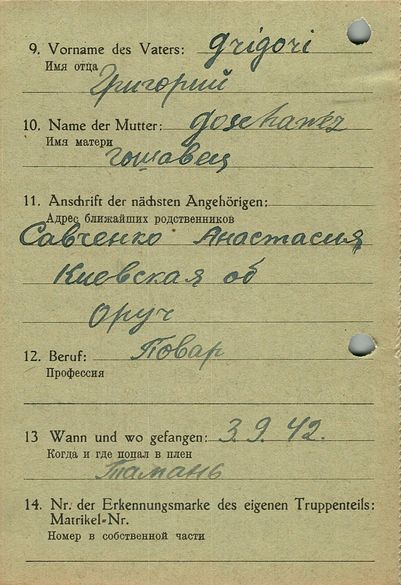 9. Vorname des Vaters: grigori
Имя отца
Григорий
10. Name der Mutter: goschawez
Имя матери
гошавец
11. Anschrift der nächsten Angehörigen:
Адрес ближайших родственников
Савченко Анастасия
Киевская об
Оруч
12. Beruf: Повар
Профессия
13 Wann und wo gefangen: 3.9.42.
Когда и где попал в плен
Тамань
14. Nr. der Erkennungsmarke des eigenen Truppenteils:
Matrikel-Nr.
Номер в собственной части